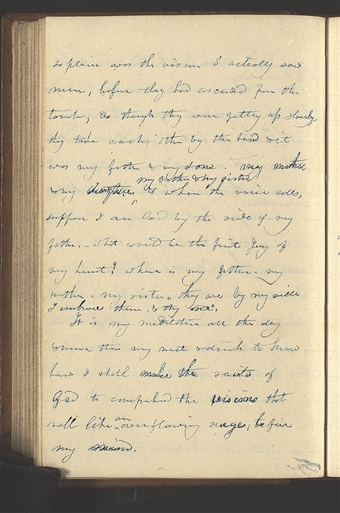 so plain was the vision I actually saw
men, before they had ascended from the
tomb, as though they were getting up slowly,
they took each other by the hand & it
was my father & my son my mother
my brother & my sister
& my daughter, & when the voice calls,
suppose I am laid by the side of my
father. what would be the first joy of
my heart? where is my father. my
mother. my sister, they are by my side
I embrace them & they me.
It is my meditation all the day
& more than my meat & drink to know
how I shall make the saints of
God to comprehend the visions that
roll like an overflowing surge, before
my mind.